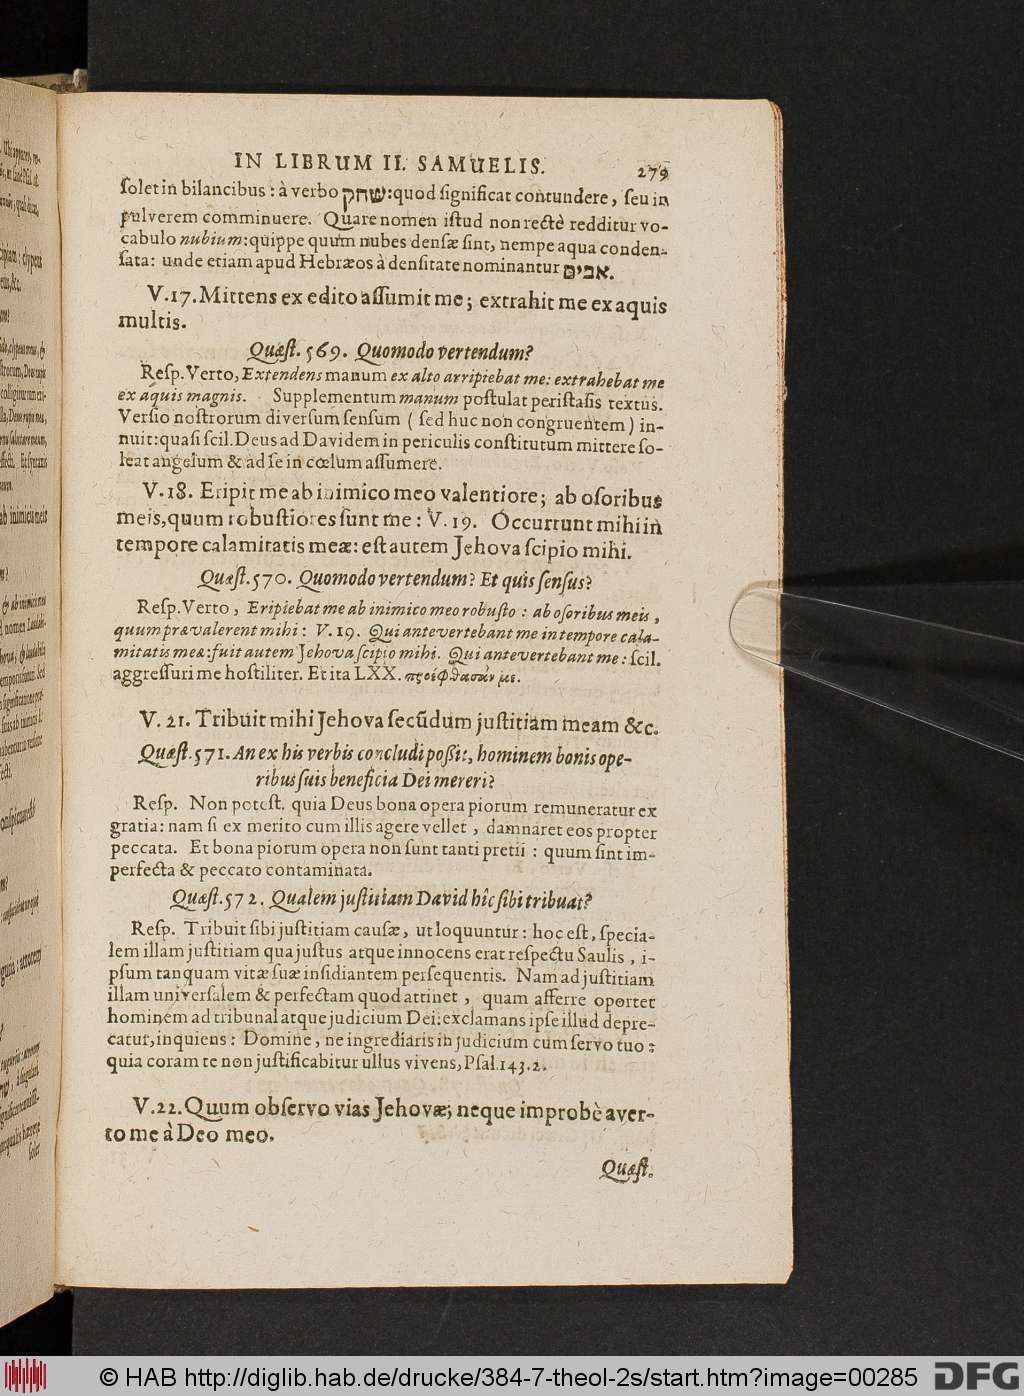 IN LIBRUM II. SAMUELIS.
279
ſolet in bilancibus: à verbo שחק: quod ſignificat contundere, ſeu in
pulverem comminuere. Quare nomen iſtud non rectè redditur vo-
cabulo nubium: quippe quum nubes denſæ ſint, nempe aqua conden-
ſata: unde etiam apud Hebræos à denſitate nominantur אבים.
V. 17. Mittens ex edito aſſumit me; extrahit me ex aquis
multis.
Quæſt. 569. Quomodo vertendum?
Reſp. Verto, Extendens manum ex alto arripiebat me: extrahebat me
ex aquis magnis. Supplementum manum poſtulat periſtaſis textus.
Verſio noſtrorum diverſum ſenſum (ſed huc non congruentem) in-
nuit: quaſi ſcil. Deus ad Davidem in periculis conſtitutum mittere ſo-
leat angelum & ad ſe in cœlum aſſumere.
V. 18. Eripit me ab inimico meo valentiore; ab oſoribus
meis, quum robuſtiores ſunt me: V. 19. Occurrunt mihi in
tempore calamitatis meæ: eſt autem Jehova ſcipio mihi.
Quæſt. 570. Quomodo vertendum? Et quis ſenſus?
Reſp. Verto, Eripiebat me ab inimico meo robuſto: ab oſoribus meis,
quum prævalerent mihi: V. 19. Qui antevertebant me in tempore cala-
mitatis meæ: fuit autem Jehova ſcipio mihi. Qui antevertebant me: ſcil.
aggreſſuri me hoſtiliter. Et ita LXX. προέφθασάν με.
V. 21. Tribuit mihi Jehova ſecūdum juſtitiam meam &c.
Quæſt. 571. An ex his verbis concludi poßit, hominem bonis ope-
ribus ſuis beneficia Dei mereri?
Reſp. Non poteſt, quia Deus bona opera piorum remuneratur ex
gratia: nam ſi ex merito cum illis agere vellet, damnaret eos propter
peccata. Et bona piorum opera non ſunt tanti pretii: quum ſint im-
perfecta & peccato contaminata.
Quæſt. 572. Qualem juſtitiam David hîc ſibi tribuat?
Reſp. Tribuit ſibi juſtitiam cauſæ, ut loquuntur: hoc eſt, ſpecia-
lem illam juſtitiam qua juſtus atque innocens erat reſpectu Saulis, i-
pſum tanquam vitæ ſuæ inſidiantem perſequentis. Nam ad juſtitiam
illam univerſalem & perfectam quod attinet, quam afferre oportet
hominem ad tribunal atque judicium Dei: exclamans ipſe illud depre-
catur, inquiens: Domine, ne ingrediaris in judicium cum ſervo tuo:
quia coram te non juſtificabitur ullus vivens, Pſal. 143. 2.
V. 22. Quum obſervo vias Jehovæ; neque improbè aver-
to me à Deo meo.
Quæſt.
© HAB http://diglib.hab.de/drucke/384-7-theol-2s/start.htm?image=00285
DFG